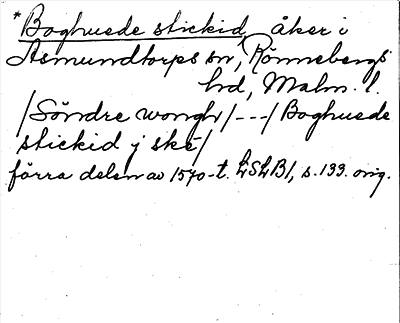 *Boghusde stickid, åker i
Asmundtorps sn, Rönnebergs
hd, Malm. l.
/Söndre wongh/---/Boghusde
stickid j ske/
förra delen av 1570-t. LSLB1, s.199. orig.